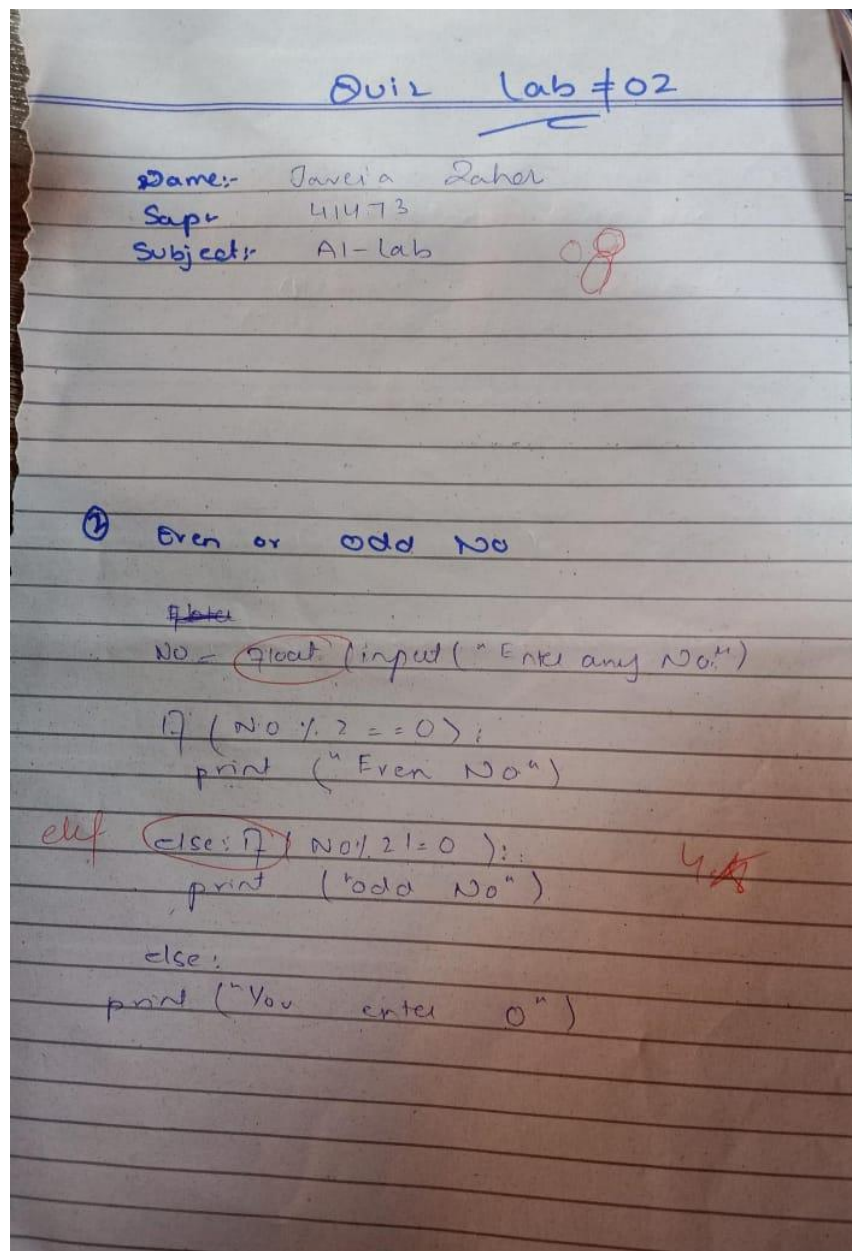 Quiz Lab # 02
Name:- Javeia Zaher
Sap:- 41473
Subject:- AI-Lab
08
② Even or odd No
No = float (input ("Enter any No:")
if (No % 2 == 0):
print ("Even No")
elif else: if (No % 2 != 0):
print ("odd No")
4.5
else:
print ("You enter 0")